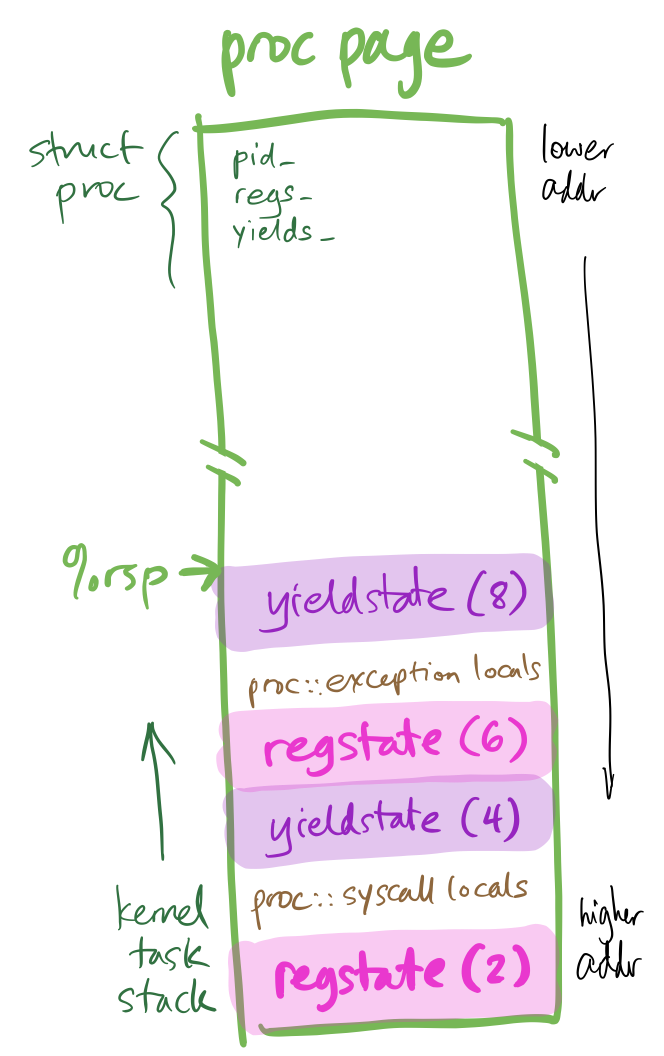 proc page
struct
proc
pid_
regs_
yields_
lower
addr
%rsp →
yieldstate (8)
proc::exception locals
regstate (6)
yieldstate (4)
proc::syscall locals
regstate (2)
kernel
task
stack
higher
addr